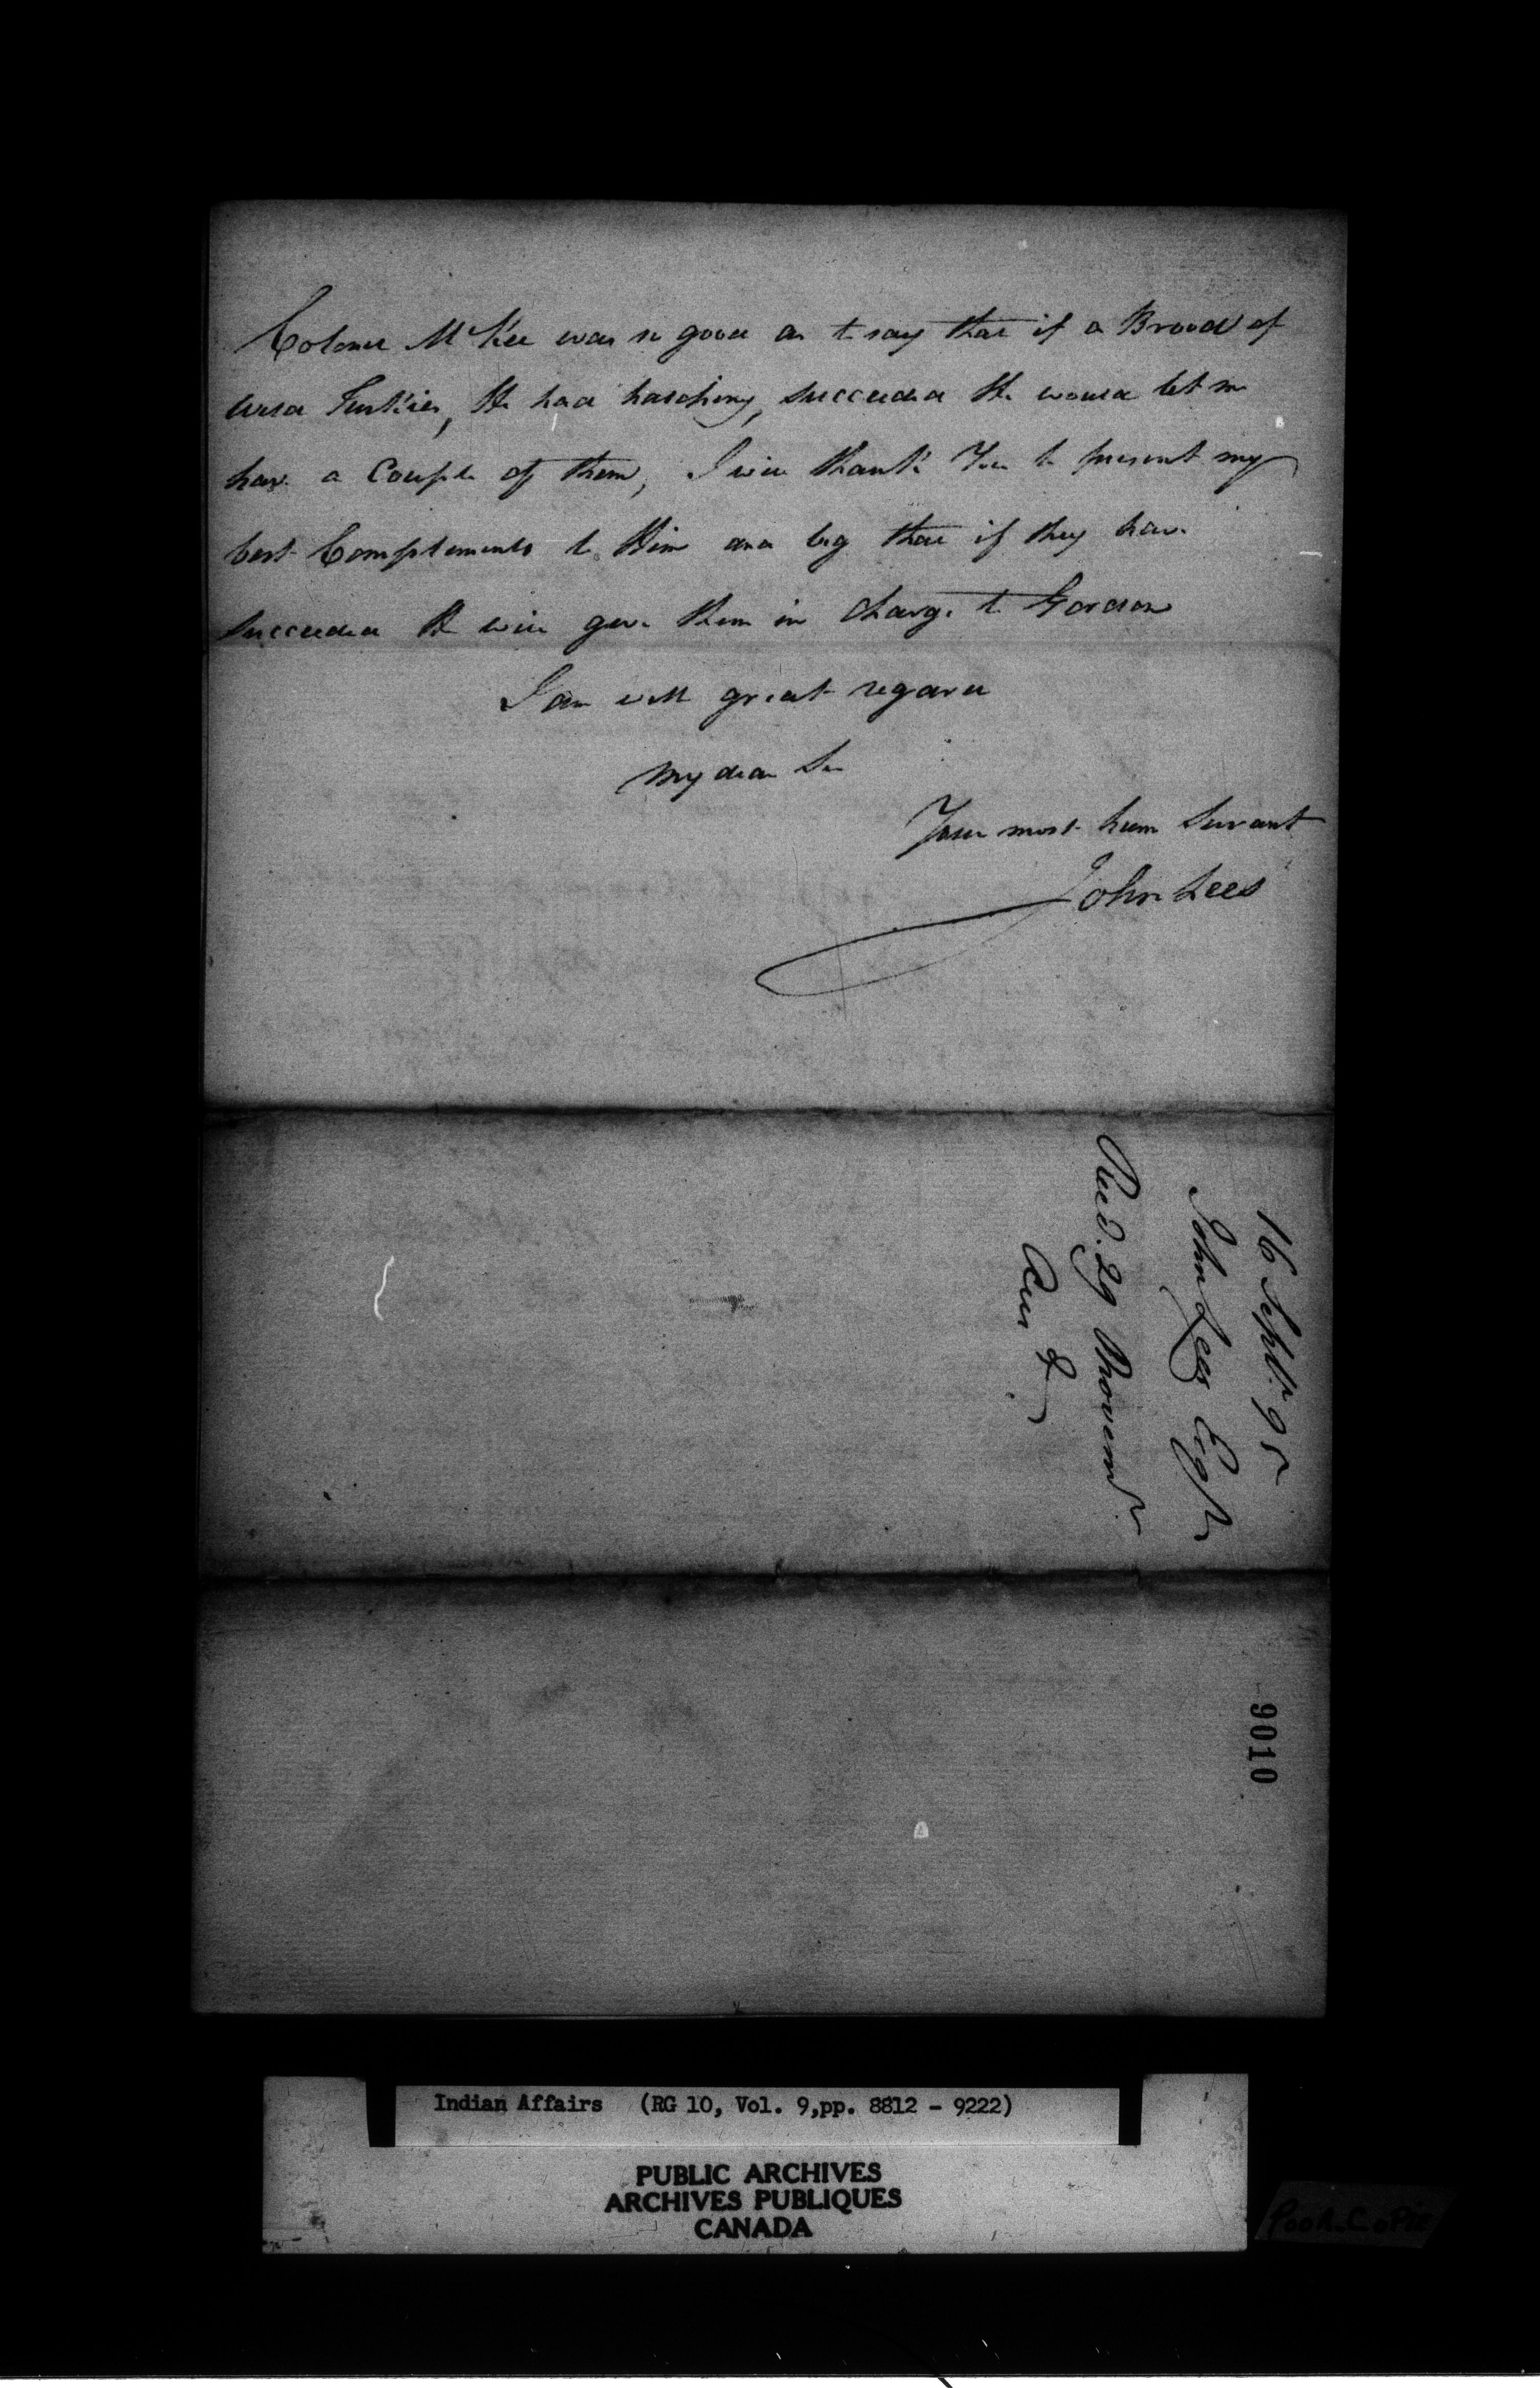 Colonel McKee was so good as to say that if a Brood of
wild Turkies, He had hatching, succeeded He would let me
have a Couple of them, I will thank You to present my
best Complements to Him and beg that if they have
succeeded He will give them in charge to Gordon
I am with great regard
My dear Sir
Your most hum Servant
John Lees
16 Septr. 95
John Lees Esqr
Recd. 29 Novemr.
Ans d
9010
Indian Affairs (RG 10, Vol. 9,pp. 8812 - 9222)
PUBLIC ARCHIVES
ARCHIVES PUBLIQUES
CANADA
POOR COPIE